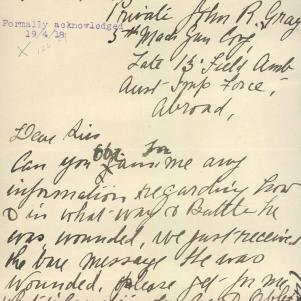 Private John R. Gray
Formally acknowledged
19/4/18
5th Mach Gun Coy.
Late 13 Field Amb
Aust Imp Force,
Abroad,
Dear Sirs
Can you for me any
information regarding how
& in what way & Battle he
was wounded, we just received
the bare message He was
Wounded, please get for me